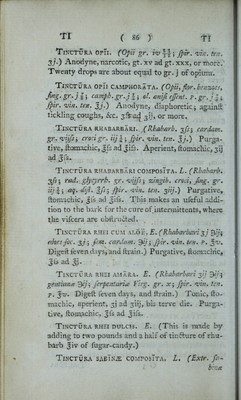 TI ( 86 ) TI
TINCTŪRA OPII. (Opii gr. iv ʒ j; ſpir. vin. ten.
ʒj.) Anodyne, narcotic, gt. xv ad gt. xxx, or more.
Twenty drops are about equal to gr. j of opium.
TINCTŪRA OPII CAMPHORĀTA. (Opii, flor. benzoës,
ſing. gr. j camph. gr. j ol. aniſi eſſent. gr. j
ſpir. vin. ten. ʒj.) Anodyne, diaphoretic; againſt
tickling coughs, &c. ʒſs ad ʒij, or more.
TINCTŪRA RHABARBĀRI. (Rhabarb. ʒſs; cardam.
gr. vijſs; croci gr. iij ſpir. vin. ten. ℥j.) Purga-
tive, ſtomachic, ℥ſs ad ℥iſs. Aperient, ſtomachic, ʒij
ad ℥ſs.
TINCTŪRA RHABARBĀRI COMPOSĪTA. L. (Rhabarb.
ʒſs; rad. glycyrrh. gr. vijſs; zingib. croci, ſing. gr.
iij aq. diſt. ℥ſs; ſpir. vin. ten. ʒiij.) Purgative,
ſtomachic, ℥ſs ad ℥iſs. This makes an uſeful addi-
tion to the bark for the cure of intermittents, where
the viſcera are obſtructed.
TINCTŪRA RHEI CUM ALOË. E. (Rhabarbari ʒj ℈ij;
aloës ſoc. ʒj; ſem. cardam. ℈ij; ſpir. vin. ten.
Digeſt ſeven days, and ſtrain.) Purgative, ſtomachic,
℥ſs ad ℥j.
TINCTŪRA RHEI AMĀRA. E. (Rhabarbari ʒij ℈ij;
gentianæ ℈ij; ſerpentariæ Virg. gr. x; ſpir. vin. ten.
Digeſt ſeven days, and ſtrain.) Tonic, ſto-
machic, aperient, ʒj ad ʒiij, bis terve die. Purga-
tive, ſtomachic, ℥ſs ad ℥iſs.
TINCTŪRA RHEI DULCIS. E. (This is made by
adding to two pounds and a half of tincture of rhu-
barb ℥iv of ſugar-candy.)
TINCTŪRA SABĪNÆ COMPOSĪTA. L. (Extr. ſa-
binæ